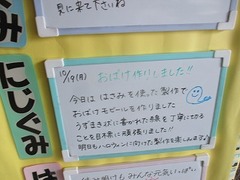 見に来て下さいね
ぐみ
にじぐみ
は
10/19(月) おばけ作りしました!!
今日は はさみを使った製作で
おばけモビールを作りました
うずまき状に書かれた線を丁寧に切る
ことを目標に頑張りました!!
明日もハロウィンに向けた製作を楽しみます♪
も みんな元気いっぱい